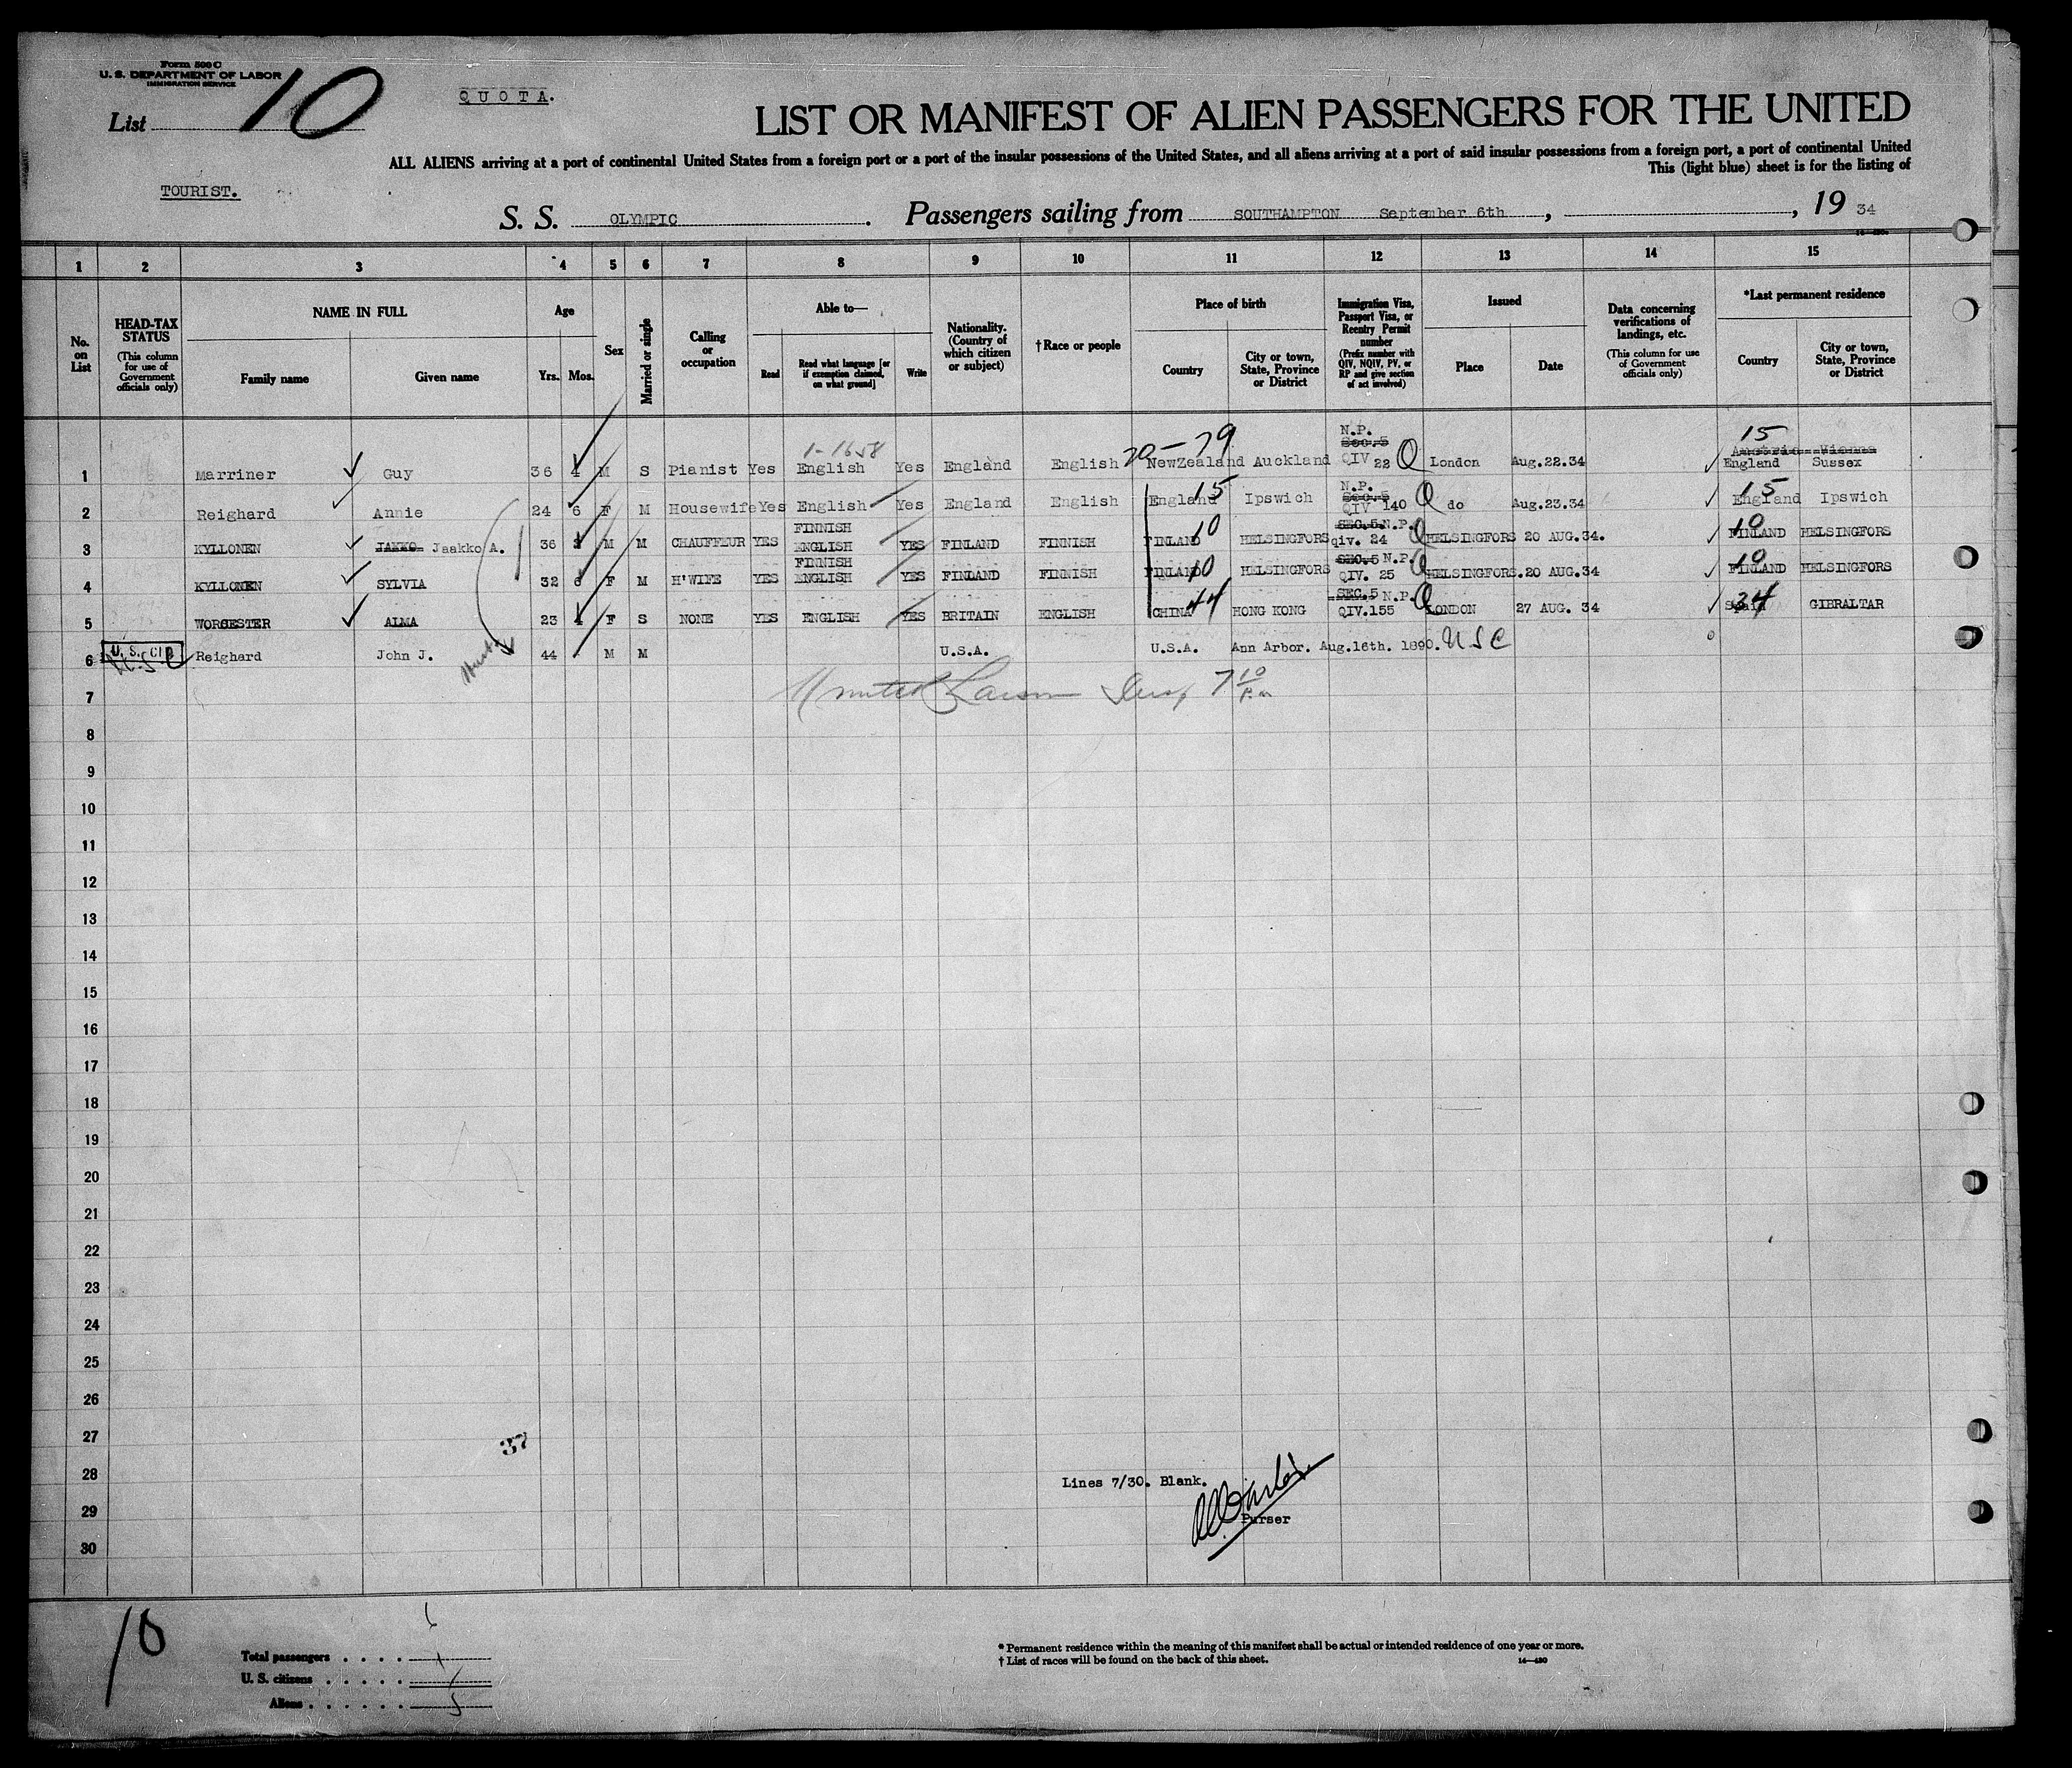 Form 500 C
U. S. DEPARTMENT OF LABOR
IMMIGRATION SERVICE
List 10
QUOTA.
LIST OR MANIFEST OF ALIEN PASSENGERS FOR THE UNITED
ALL ALIENS arriving at a port of continental United States from a foreign port or a port of the insular possessions of the United States, and all aliens arriving at a port of said insular possessions from a foreign port, a port of continental United
This (light blue) sheet is for the listing of
TOURIST.
S. S. OLYMPIC. Passengers sailing from SOUTHAMPTON September 6th, , 19 34
1 2 3 4 5 6 7 8 9 10 11 12 13 14 15
No. on List
HEAD-TAX STATUS (This column for use of Government officials only)
NAME IN FULL
Family name Given name
Age
Yrs. Mos.
Sex
Married or single
Calling or occupation
Able to—
Read Read what language [or if exemption claimed, on what ground] Write
Nationality. (Country of which citizen or subject)
†Race or people
Place of birth
Country City or town, State, Province or District
Immigration Visa, Passport Visa, or Reentry Permit number (Prefix number with QIV, NQIV, PV, or RP and give section of act involved)
Issued
Place Date
Data concerning verifications of landings, etc. (This column for use of Government officials only)
*Last permanent residence
Country City or town, State, Province or District
1-1658 20-79 N.P. Sec.5 15 Austria Vienna
1 Marriner Guy 36 4 M S Pianist Yes English Yes England English NewZealand Auckland QIV 22 Q London Aug.22.34 England Sussex
N.P. Sec.5
2 Reighard Annie 24 6 F M Housewife Yes English Yes England English England 15 Ipswich QIV 140 Q do Aug.23.34 England 15 Ipswich
FINNISH SEC.5 N.P.
3 KYLLONEN JAKKO Jaakko A. 36 M M CHAUFFEUR YES ENGLISH YES FINLAND FINNISH FINLAND 10 HELSINGFORS qiv. 24 Q HELSINGFORS 20 AUG.34. FINLAND 10 HELSINGFORS
FINNISH SEC.5 N.P.
4 KYLLONEN SYLVIA 32 6 F M H'WIFE YES ENGLISH YES FINLAND FINNISH FINLAND 10 HELSINGFORS QIV. 25 Q HELSINGFORS.20 AUG.34 FINLAND 10 HELSINGFORS
SEC.5 N.P.
5 WORCESTER ALMA 23 4 F S NONE YES ENGLISH YES BRITAIN ENGLISH CHINA 44 HONG KONG QIV.155 Q LONDON 27 AUG. 34 Spain 34 GIBRALTAR
6 U.S. CIT USC Reighard John J. 44 M M U.S.A. U.S.A. Ann Arbor. Aug.16th. 1890. USC
7 7 10 P.m
8
9
10
11
12
13
14
15
16
17
18
19
20
21
22
23
24
25
26
27 37
28 Lines 7/30. Blank.
29 Purser
30
10
6
Total passengers
U. S. citizens 1
Aliens 5
* Permanent residence within the meaning of this manifest shall be actual or intended residence of one year or more.
† List of races will be found on the back of this sheet.
14—430